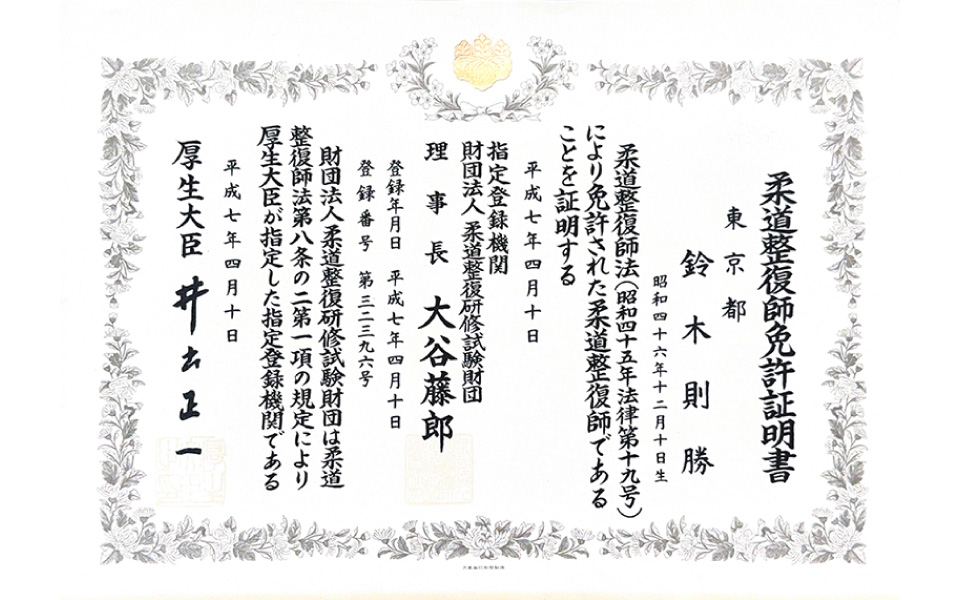 柔道整復師免許証明書
東京都
鈴木則勝
昭和四十六年十二月十日生
柔道整復師法(昭和四十五年法律第十九号)
により免許された柔道整復師である
ことを証明する
平成七年四月十日
指定登録機関
財団法人柔道整復研修試験財団
理事長 大谷藤郎
登録年月日 平成七年四月十日
登録番号 第三二三九六号
財団法人柔道整復研修試験財団は柔道
整復師法第八条の二第一項の規定により
厚生大臣が指定した指定登録機関である
平成七年四月十日
厚生大臣 井出正一